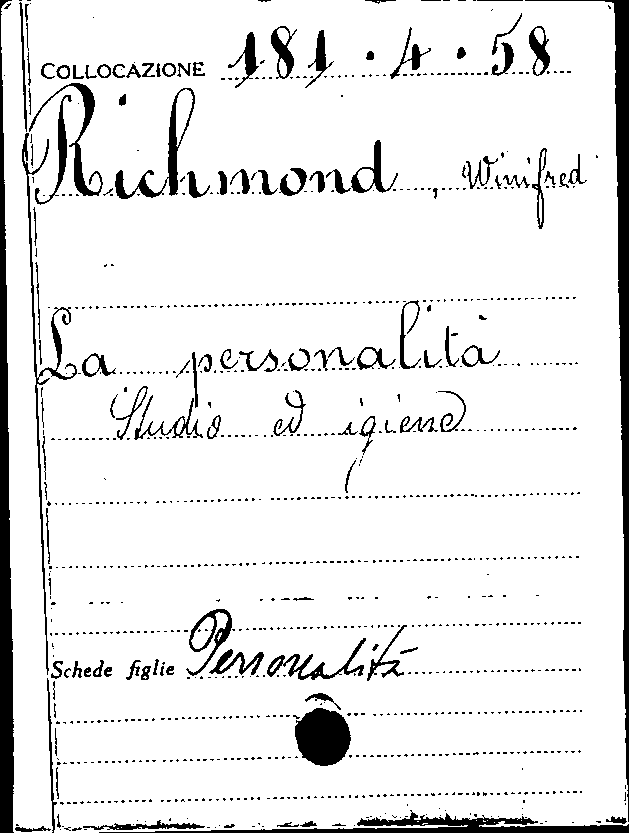 COLLOCAZIONE 181 . 4 . 58
Richmond, Winifred
La personalità
Studio ed igiene
Schede figlie Personalità